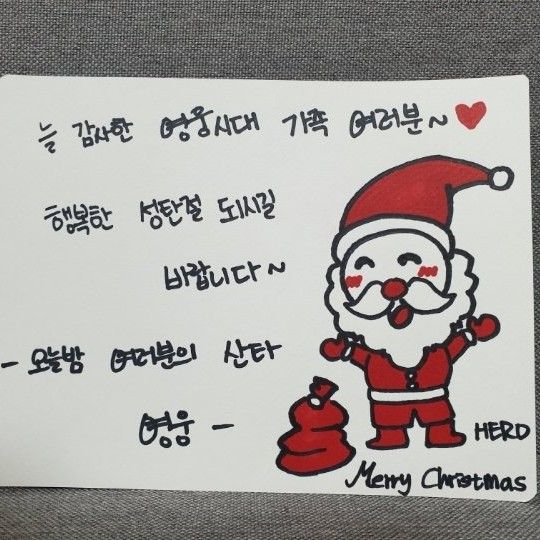 늘 감사한 영웅시대 가족 여러분~
행복한 성탄절 되시길
바랍니다~
- 오늘밤 여러분의 산타
영웅 -
HERO
Merry Christmas